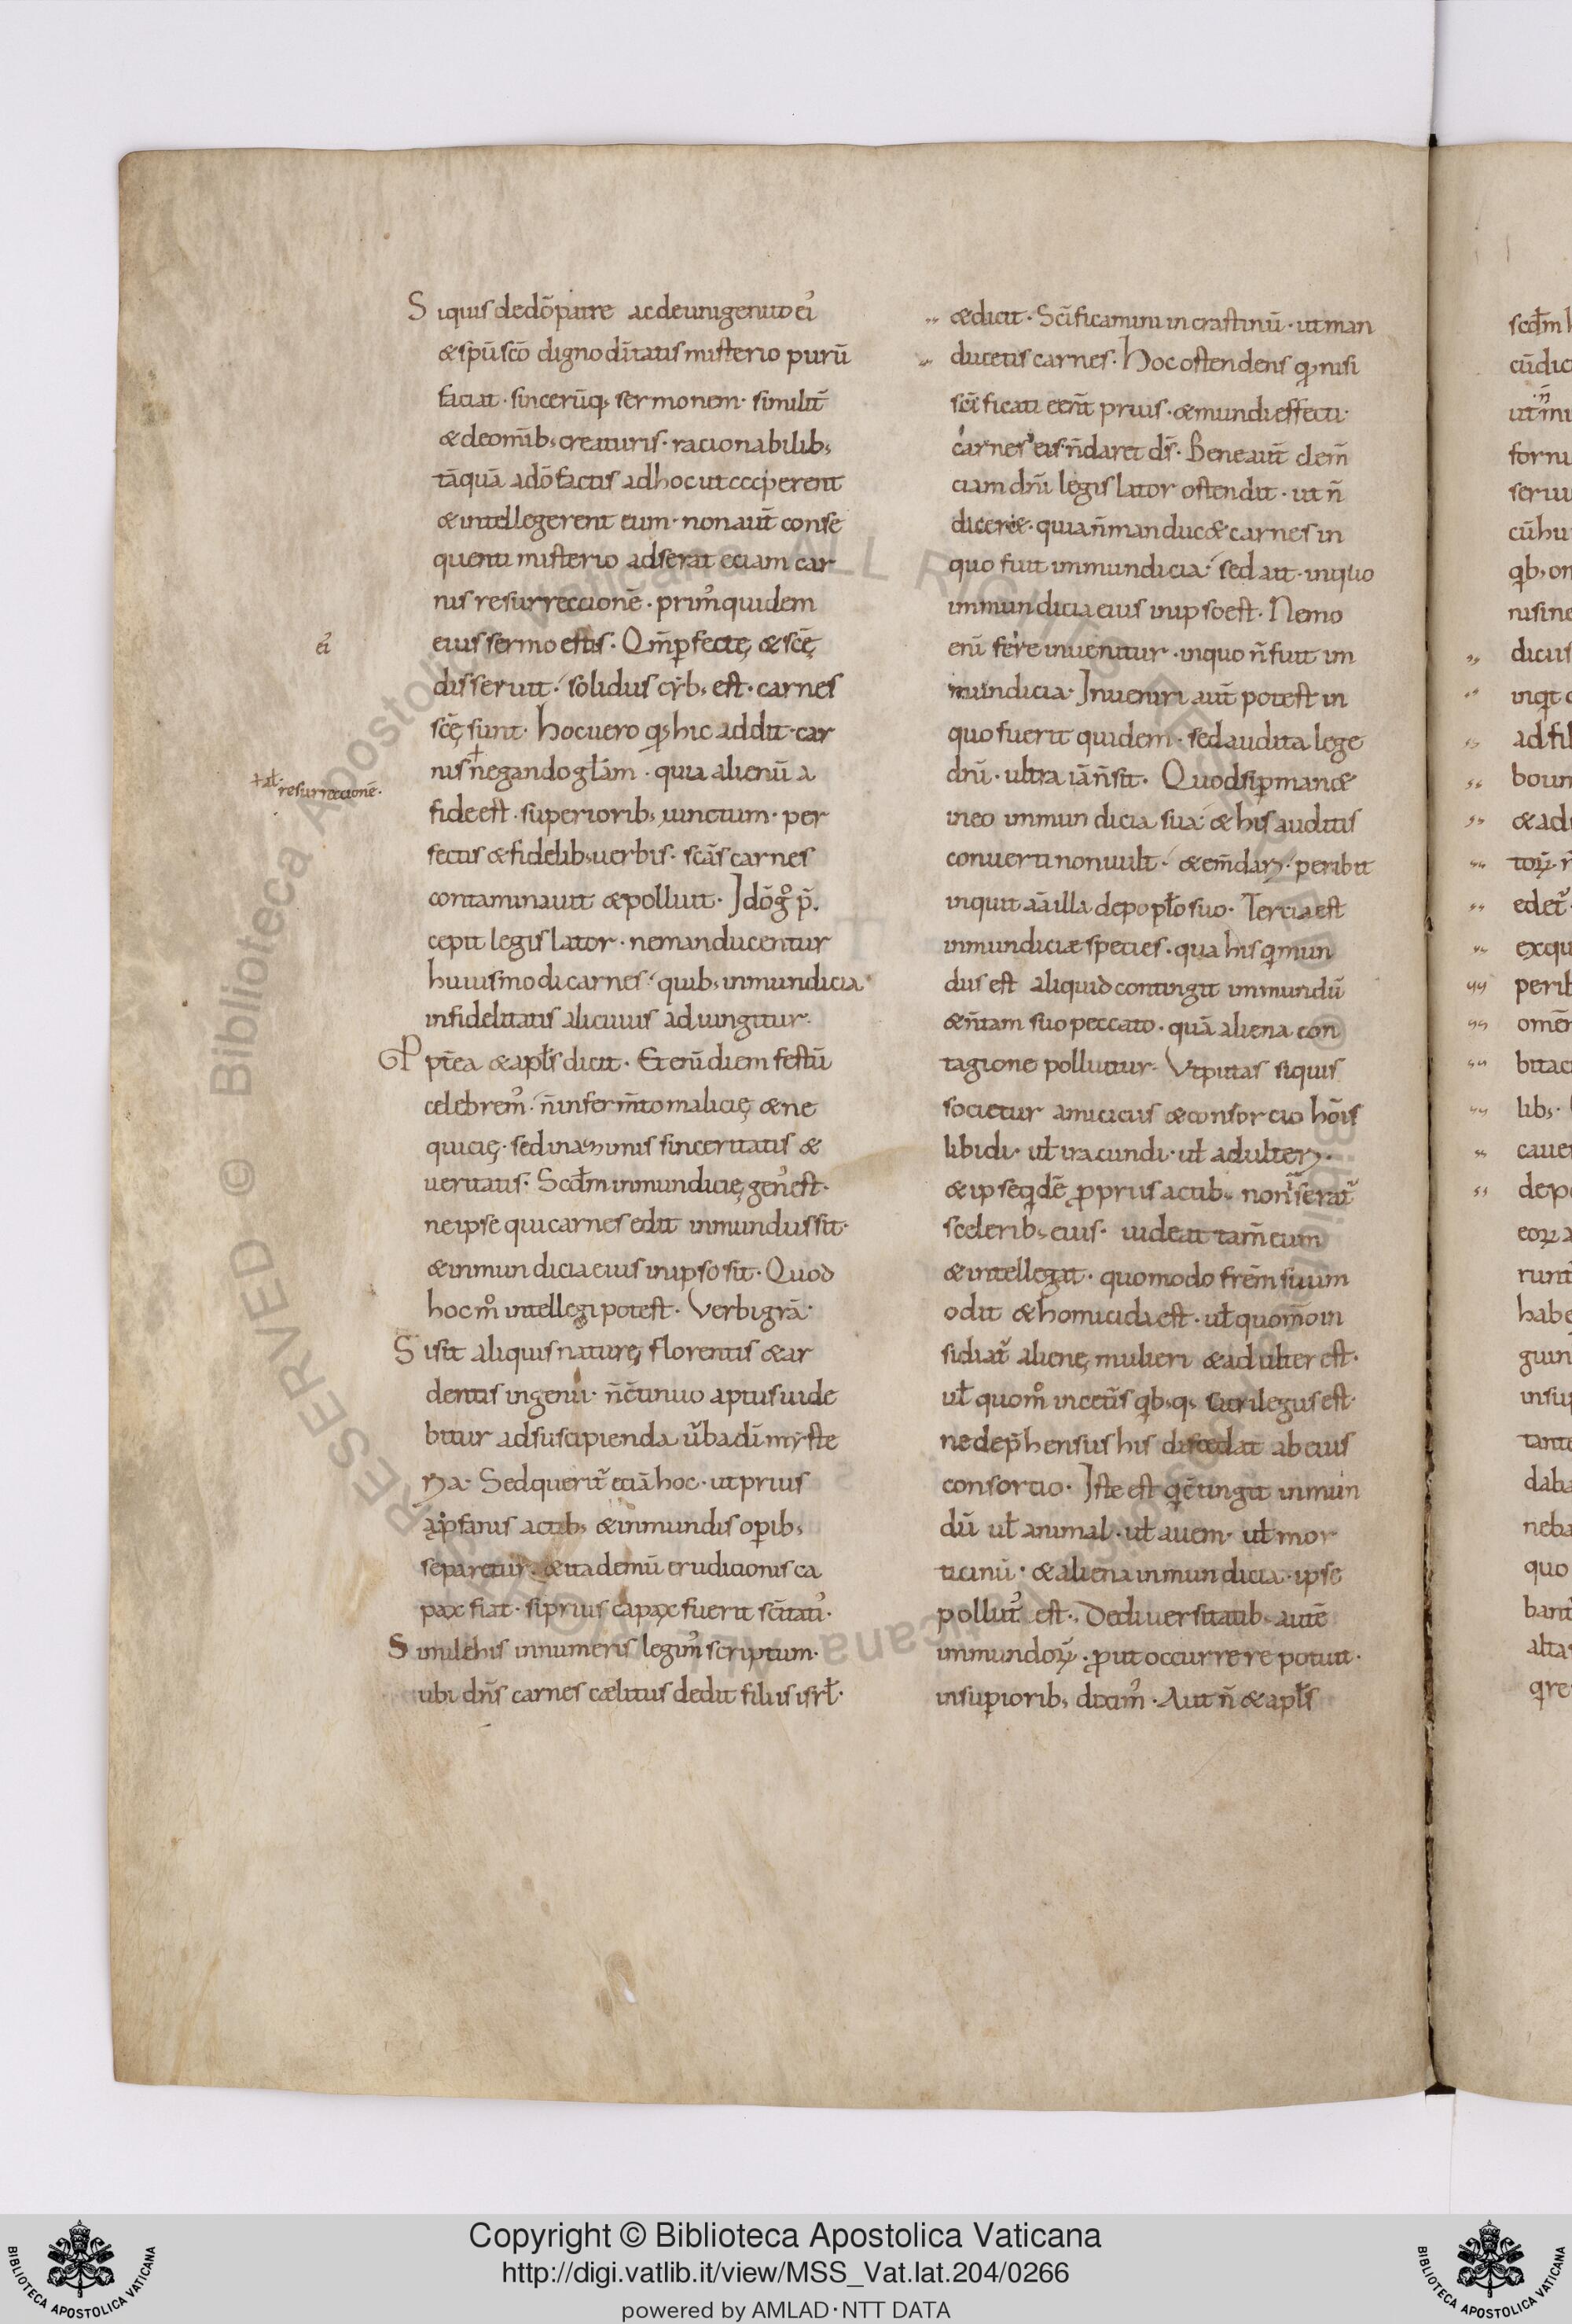 Siquis dedō patre ac deunigenito ei᾽
& sp̄u sc̄o digno dīitatis misterio purū
faciat · sincerūq; sermonem · similit̄
& de om̄ib; creaturis · racionabilib;
tāquā a dō factis ad hoc ut ccc̣perent
& intellegerent eum · non aut̄ conse
quenti misterio adserat eciam car
nis resurreccionē · prim᾽ quidem
eius sermo estis · Qm̄ pfectę & scę̄
disseruit · solidus cẏb; est · carnes
scę̄ sunt · Hoc uero qđ hic addit · car
nis negando głam · quia alienū a
fide est · superiorib; uinctum · per
fectis & fidelib; uerbis · scās carnes
contaminauit & polluit · Idō g̊ p̄
cepit legislator · ne manducentur
huiusmodi carnes · quib; inmundicia
infidelitatis alicuius adiungitur ·
Ppt̄ea & apłs dicit · Et enī diem festū
celebrem᾽ · n̄ in ferm̄to malicię & ne
quicię · sed in azimis sinceritatis &
ueritatis · Scd̄m inmundicię gen᾽ est ·
ne ipse qui carnes edit inmundus sit ·
& inmundicia eius in ipso sit · Quod
hoc m̊ intellegi potest · Verbi grā ·
Si sit aliquis naturę florentis & ar
dentis ingenii · n̄ c̄tinuo aptus uide
bitur ad suscipienda ūba dī mẏste
ria · Sed querit᾽ eciā hoc · ut prius
a pfanis actib; & inmundis opib;
separetur · & ita demū erudicionis ca
pax fiat · si prius capax fuerit sc̄itati᾽ ·
Simile his in numeris legim᾽ scriptum ·
ubi dn̄s carnes cælitus dedit filiis isrł ·
ei᾽
+ ał resurreccionē ·
& dicit · Sc̄ificamini in crastinū · ut man
ducetis carnes · Hoc ostendens qđ nisi
sc̄ificati een̄t prius · & mundi effecti ·
carnes eis n̄ daret ds̄ · Bene aut̄ clem̄
ciam dn̄i legislator ostendit · ut n̄
diceret · quia n̄ manduc& carnes in
quo fuit immundicia · sed ait · in quo
immundicia eius in ipso est · Nemo
enī fere inuenitur · in quo n̄ fuit im
mundicia · Inueniri aut̄ potest in
quo fuerit quidem · sed audita lege
dn̄i · ultra iā n̄ sit · Quod si pman&
in eo immundicia sua · & his auditis
conuerti non uult · & em̄dari · peribit
inquit aīa illa de popło suo · Tercia est
inmundiciæ species · qua his q̄ mun
dus est aliquid contingit immundū
& n̄ tam suo peccato · quā aliena con
tagione polluitur · Vt putas si quis
societur amiciciis & consorcio hōis
libidi · uł iracundi · uł adulteri ·
& ipse qdē propriis actib; non īserat᾽
scelerib; eius · uideat tam̄ eum
& intellegat · quomodo frēm suum
odit & homicida est · uł quom̄o in
sidiat᾽ alienę mulieri & adulter est ·
uł quom̊ incet̄is qb;q; sacrilegus est ·
ne dep̄hensus his discedat ab eius
consorcio · Iste est q c̄tingit inmun
dū uł animal · uł auem · uł mor
ticinū · & aliena inmundicia · ipse
pollut᾽ est · De diuersitatib; autē
immundoꝝ · prout occurrere potuit ·
in supiorib; dixim᾽ · Aut n̄ & apłs
scd̄m
cū dic
forni
seruu
cū hu
nisi ne
dicius
inqt
ad fil
boun
& ad
toꝝ
edet᾽
exqu
perib
omē
bitac
lib;
caue
de po
eoꝝ
runt
habe
guin
insu
tant
daba
neba
quo
bant
alta
qre